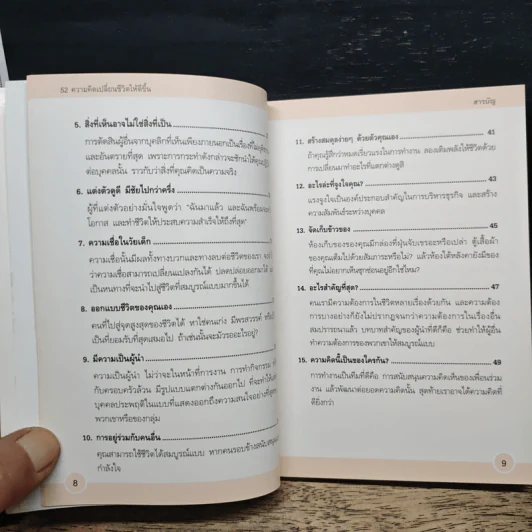 52 ความคิดเปลี่ยนชีวิตให้ดีขึ้น
5. สิ่งที่เห็นอาจไม่ใช่สิ่งที่เป็น
การตัดสินผู้อื่นจากบุคลิกที่เห็นเพียงภายนอกเป็นเรื่องที่
และอันตรายที่สุด เพราะการกระทำดังกล่าวจะชักนำให้คุณ
ต่อบุคคลนั้น ราวกับว่าสิ่งที่คุณคิดเป็นความจริง
6. แต่งตัวดูดี มีชัยไปกว่าครึ่ง
ผู้ที่แต่งตัวอย่างมั่นใจพูดว่า "ฉันมาแล้ว และฉันพร้อม
โอกาส และทำชีวิตให้ประสบความสำเร็จให้ถึงที่สุด"
7. ความเชื่อในวัยเด็ก
ความเชื่อนั้นมีผลทั้งทางบวกและทางลบต่อชีวิตของเรา
ว่าความเชื่อสามารถเปลี่ยนแปลงกันได้ ปลดปล่อยออกมาได้
เป็นหนทางที่จะนำไปสู่ชีวิตที่สมบูรณ์แบบมากขึ้นได้
8. ออกแบบชีวิตของคุณเอง
คนที่ไปสู่จุดสูงสุดของชีวิตได้ หาใช่คนเก่ง มีพรสวรรค์
เป็นที่ยอมรับที่สุดเสมอไป ถ้าเช่นนั้นจะมัวรออะไรอยู่?
9. มีความเป็นผู้นำ
ความเป็นผู้นำ ไม่ว่าจะในหน้าที่การงาน การทำกิจกรรม
กับครอบครัวล้วน มีรูปแบบแตกต่างกันออกไป ที่จะทำให้
บุคคลประพฤติในแบบที่แสดงออกถึงความสนใจอย่างที่สุด
พวกเขาหรือของกลุ่ม
10. การอยู่ร่วมกับคนอื่น
คุณสามารถใช้ชีวิตได้สมบูรณ์แบบ หากคนรอบข้างสนับสนุน
กำลังใจ
8
สารบัญ
11. สร้างสมดุลง่ายๆ ด้วยตัวคุณเอง 41
ถ้าคุณรู้สึกว่าหมดเรี่ยวแรงในการทำงาน ลองเติมพลังให้ชีวิตด้วย
การเปลี่ยนมาทำอะไรที่แตกต่างดูสิ
12. อะไรล่ะที่จูงใจคุณ? 43
แรงจูงใจเป็นองค์ประกอบสำคัญในการบริหารธุรกิจ และสร้าง
ความสัมพันธ์ระหว่างบุคคล
13. จัดเก็บข้าวของ 45
ห้องเก็บของของคุณมีกล่องที่ฝุ่นจับเขรอะหรือเปล่า ตู้เสื้อผ้า
ของคุณเต็มไปด้วยสัมภาระหรือไม่? แล้วห้องใต้หลังคายังมีของ
ที่คุณไม่อยากเห็นซุกซ่อนอยู่อีกใช่ไหม?
14. อะไรสำคัญที่สุด? 47
คนเรามีความต้องการในชีวิตหลายเรื่องด้วยกัน และความต้อง
การบางอย่างก็ยังไม่ปรากฏจนกว่าความต้องการในเรื่องอื่น
สมปรารถนาแล้ว บทบาทสำคัญของผู้นำที่ดีก็คือ ช่วยทำให้ผู้อื่น
ทำความต้องการของพวกเขาให้สมบูรณ์แบบ
15. ความคิดนี้เป็นของใครกัน? 49
การทำงานเป็นทีมที่ดีคือ การสนับสนุนความคิดเห็นของเพื่อนร่วม
งาน แล้วพัฒนาต่อยอดความคิดนั้น สุดท้ายเราอาจได้ความคิดที่
ดียิ่งกว่า
9